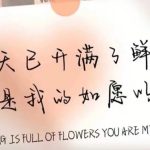 天已开满了鲜
是我的如愿以
G IS FULL OF FLOWERS YOU ARE M